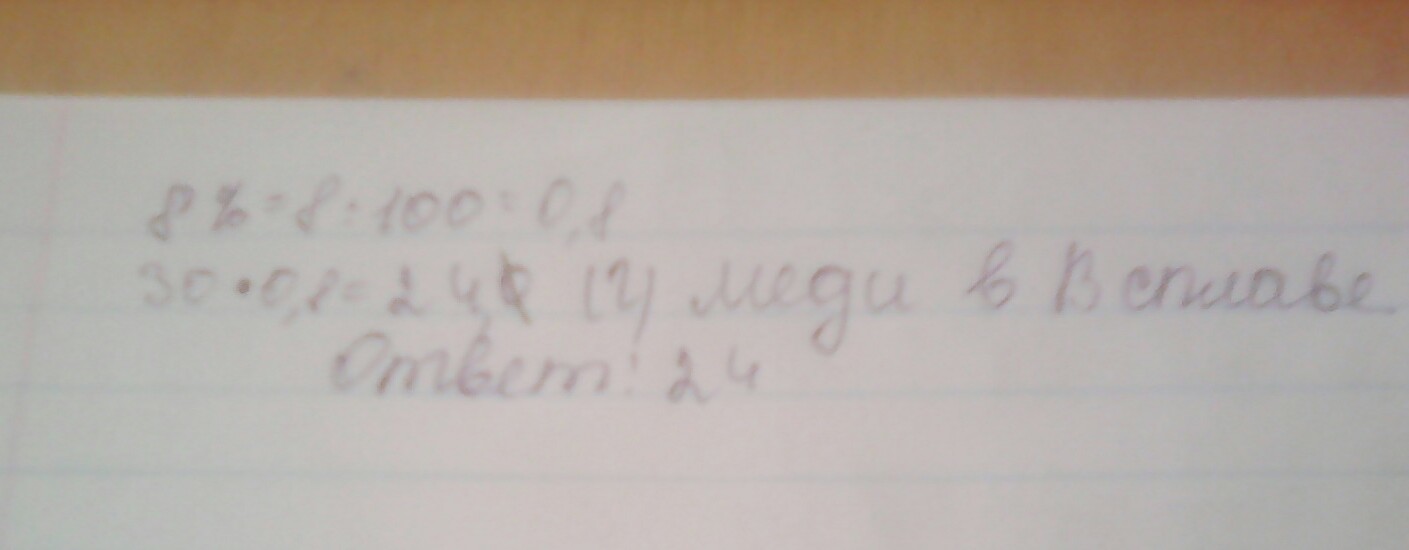 8% = 8 : 100 = 0,8
30 • 0,8 = 24, (г) меди в В сплаве
Ответ: 24